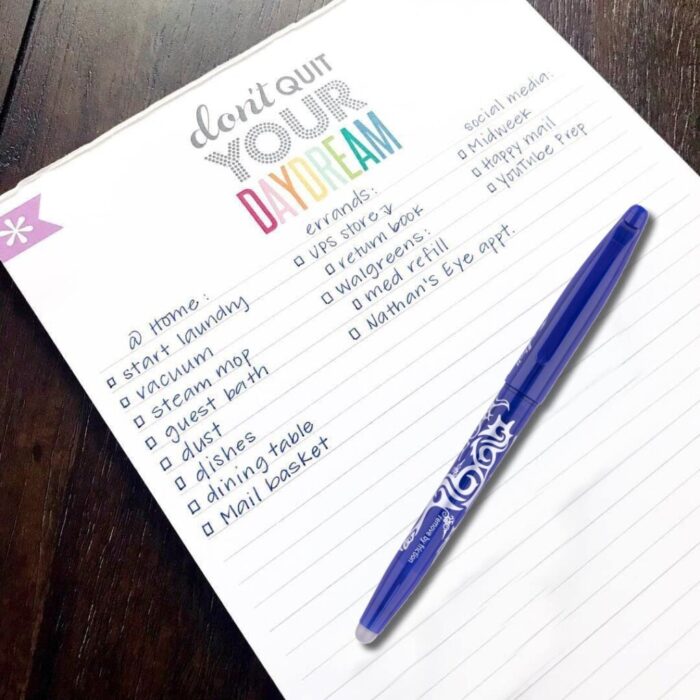 don't QUIT
YOUR
DAYDREAM
@ Home:
□ start laundry
□ vacuum
□ steam mop
□ guest bath
□ dust
□ dishes
□ dining table
□ Mail basket
errands:
□ UPS store ↴
□ return book
□ Walgreens:
□ med refill
□ Nathan's Eye appt.
social media:
□ Midweek
□ Happy mail
□ YouTube Prep
remove by friction